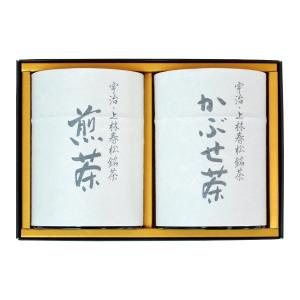 宇治・上林春松銘茶
かぶせ茶
宇治・上林春松銘茶
煎茶